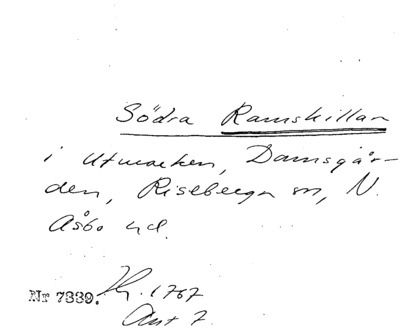 Södra Ramskillan
i Utmarken, Damsgår-
den, Riseberga sn, N.
Åsbo hd.
Nr 7339. 1767
Akt 7